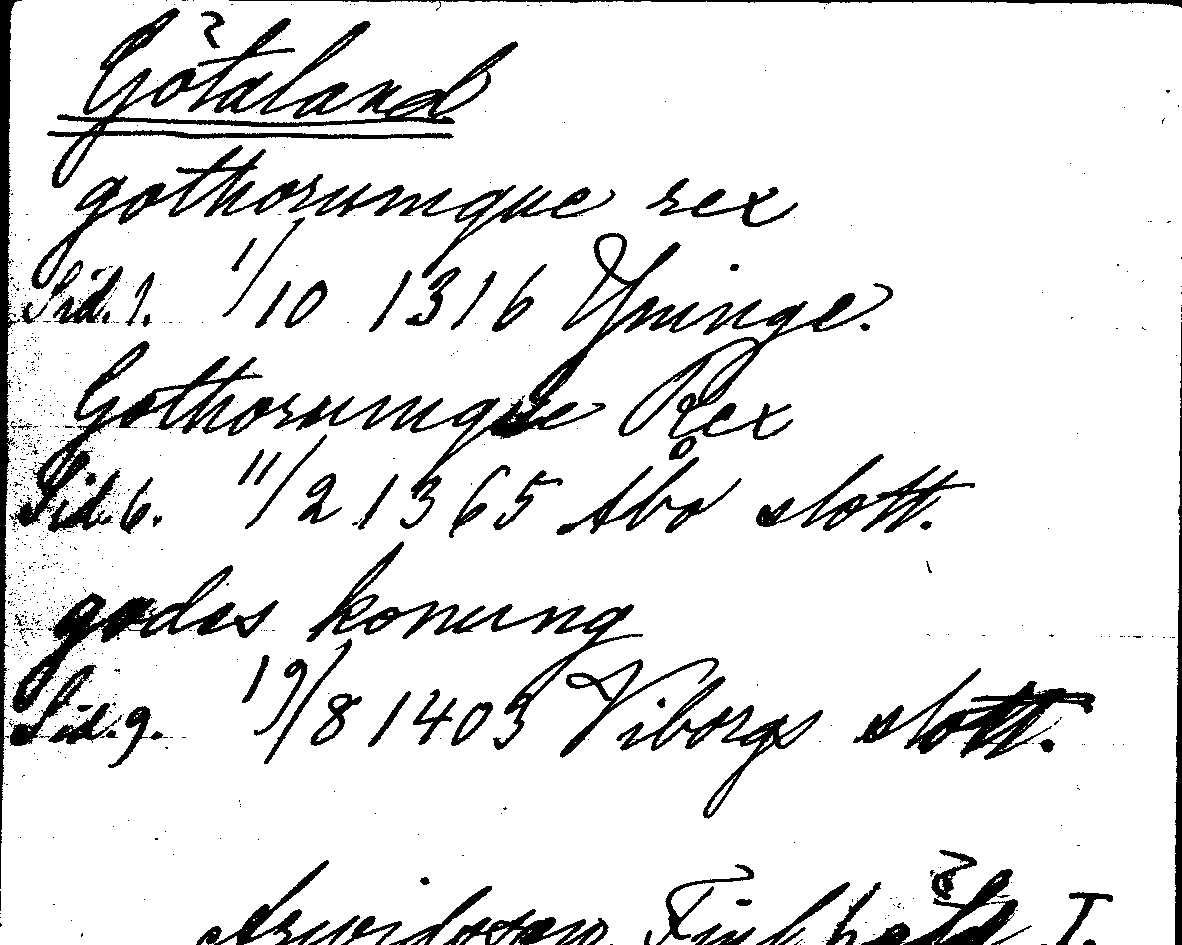 Götaland
gothorumque rex
Sid. 1. 1/10 1316 Yninge.
Gothorumque Rex
Sid. 6. 11/2 1365 Åbo slott.
godes konung
Sid. 9. 19/8 1403 Viborgs slott.
Arwidsson, I.